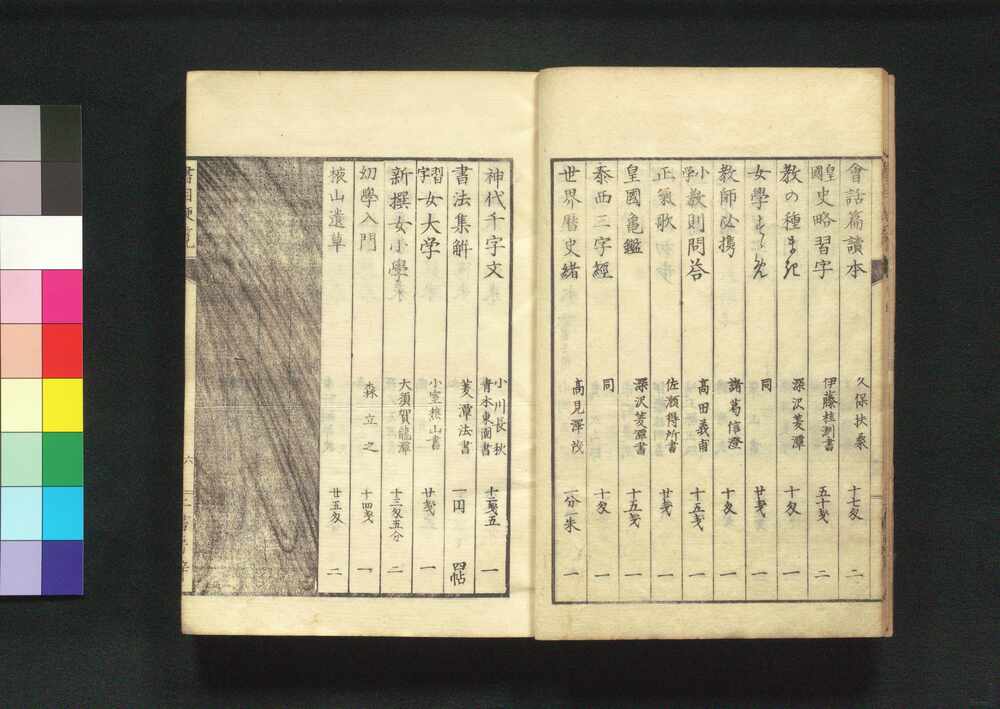 會話篇讀本 久保扶桑 十七匁 二
皇國史略習字 伊藤桂洲書 五十匁 二
教の種まき 深沢菱潭 十匁 一
女學 同 廿匁 一
教師必携 諸葛信澄 十匁 一
小學教則問答 高田義甫 十五匁 一
正氣歌 佐瀬得所書 廿匁 一
皇國亀鑑 深沢菱潭書 十五匁 一
泰西三字經 同 十匁 一
世界暦史緒 高見澤茂 一分一朱 一
神代千字文 小川長秋 青木東園書 十二匁五 一
書法集解 菱潭法書 一円 四帖
習字女大学 小室樵山書 廿匁 一
新撰女小學 大須賀龍潭 十三匁五分 二
幼學入門 森立之 十四匁 一
遺草 廿五匁 二
六